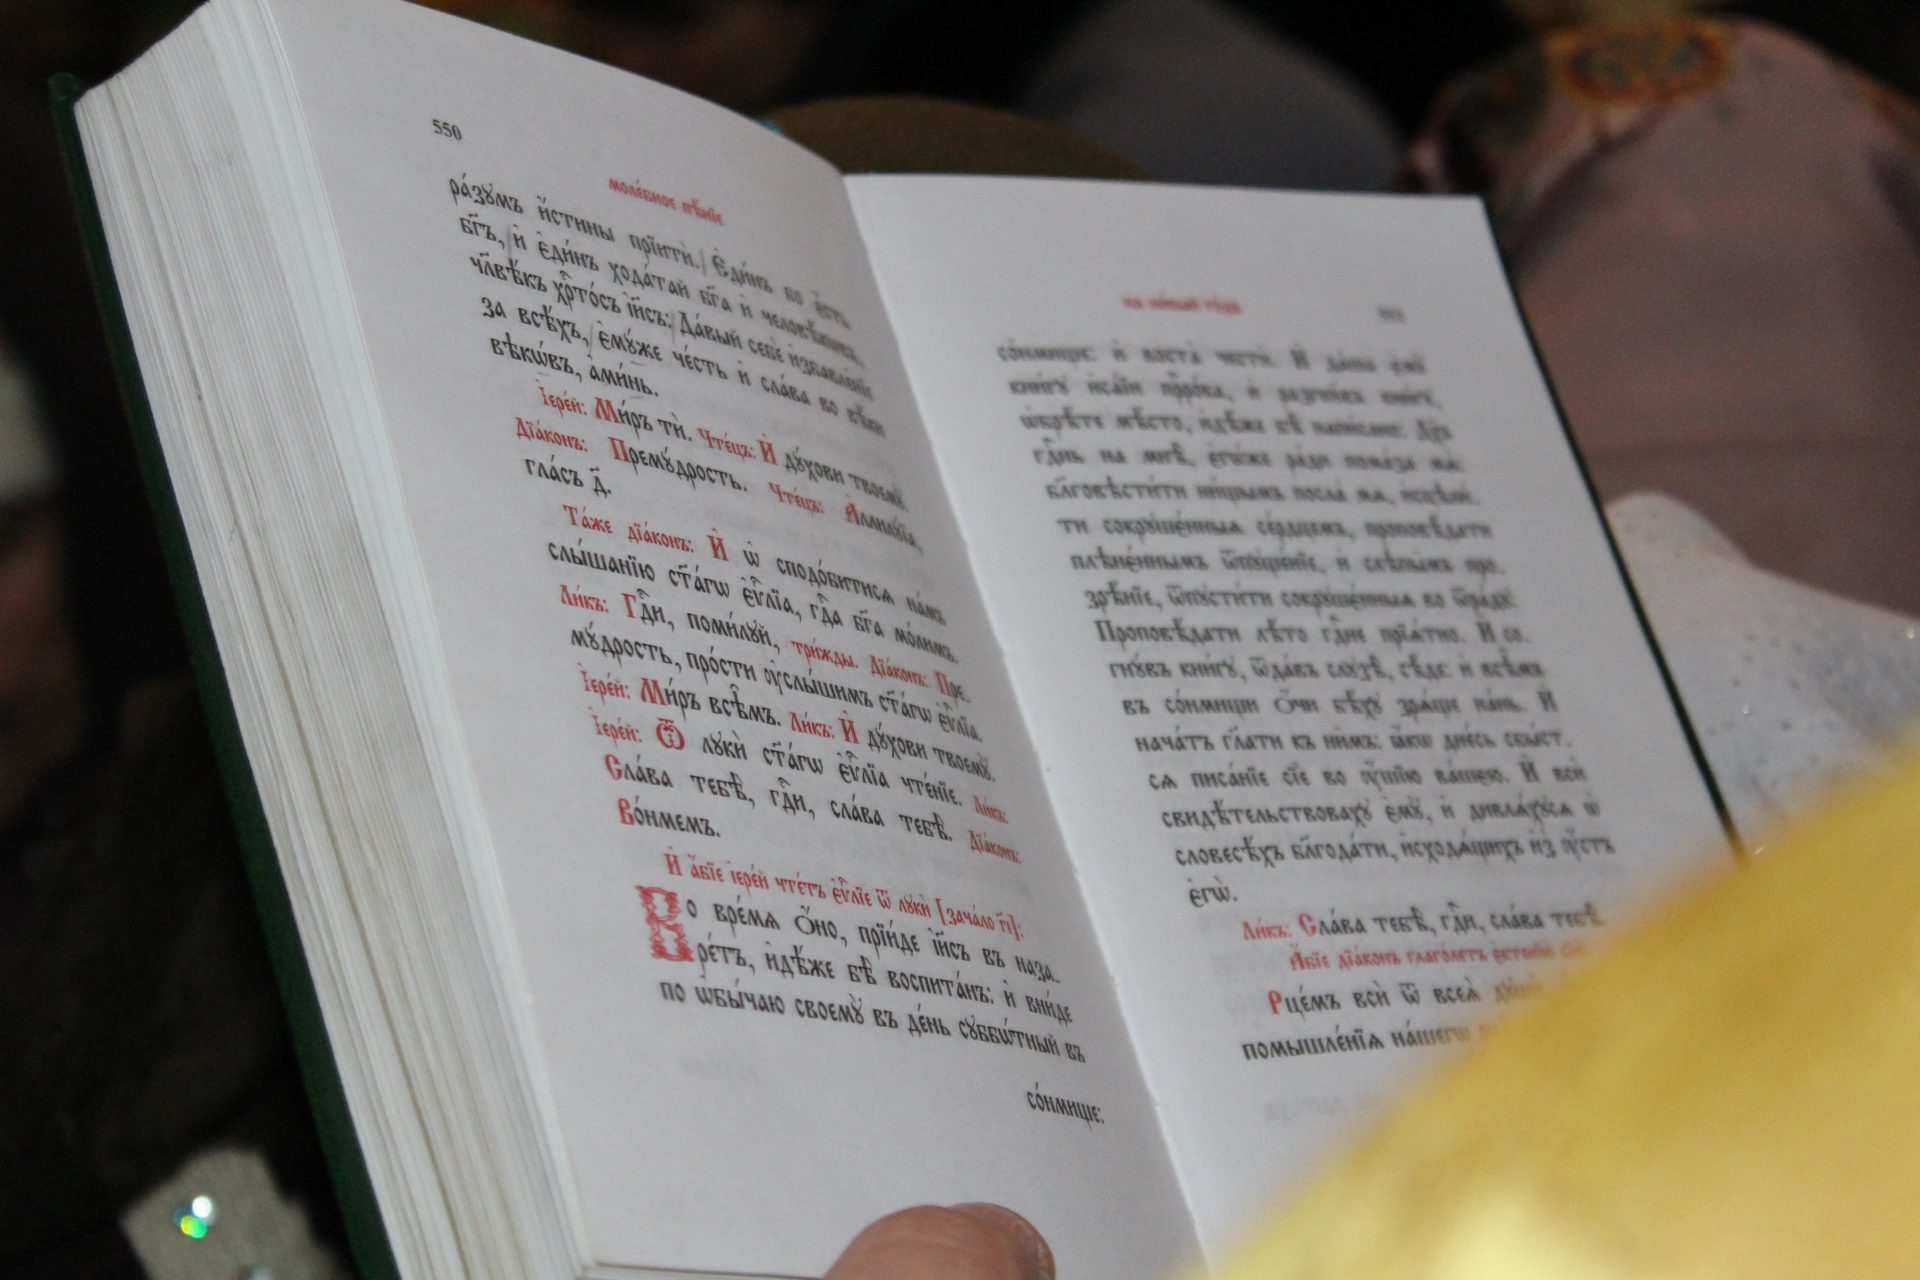 550
моле́бное пѣ́нїе
ра́зꙋмъ и҆́стины прїитѝ. Є҆ди́нъ бо є҆́сть
бг҃ъ, и҆ є҆ди́нъ хода́тай бг҃а и҆ человѣ́кѡвъ,
чл҃вѣ́къ хрⷭ҇то́съ і҆и҃съ: Да́вый себѐ и҆збавле́нїе
за всѣ́хъ, є҆мꙋ́же че́сть и҆ сла́ва во вѣ́ки
вѣкѡ́въ, а҆ми́нь.
І҆ере́й: Ми́ръ тѝ. Чте́цъ: И҆ дꙋ́хови твоемꙋ̀.
Дїа́конъ: Премꙋ́дрость. Чте́цъ: А҆ллилꙋ́їа,
гла́съ д҃.
Та́же дїа́конъ: И҆ ѡ҆ сподо́битисѧ на́мъ
слы́шанїю ст҃а́гѡ є҆ѵⷢ҇лїа, гдⷭ҇а бг҃а мо́лимъ.
Ли́къ: Гдⷭ҇и, поми́лꙋй, три́жды. Дїа́конъ: Пре-
мꙋ́дрость, про́сти ᲂу҆слы́шимъ ст҃а́гѡ є҆ѵⷢ҇лїа.
І҆ере́й: Ми́ръ всѣ̑мъ. Ли́къ: И҆ дꙋ́хови твоемꙋ̀.
І҆ере́й: Ѿ лꙋкѝ ст҃а́гѡ є҆ѵⷢ҇лїа чте́нїе. Ли́къ:
Сла́ва тебѣ̀, гдⷭ҇и, сла́ва тебѣ̀. Дїа́конъ:
Во́нмемъ.
И҆ а҆́бїе і҆ере́й чте́тъ є҆ѵⷢ҇лїе ѿ лꙋкѝ [зача́ло г҃і]:
Во вре́мѧ ѻ҆́но, прїи́де і҆и҃съ въ наза-
ре́тъ, и҆дѣ́же бѣ̀ воспита́нъ: и҆ вни́де
по ѡ҆бы́чаю своемꙋ̀ въ де́нь сꙋббѡ́тный въ
со́нмище:
на но́вый го́дъ
со́нмище: и҆ воста̀ честѝ. И҆ да́ша є҆мꙋ̀
кни́гꙋ и҆са́їи прⷪ҇ро́ка, и҆ разгнꙋ́въ кни́гꙋ,
ѡ҆брѣ́те мѣ́сто, и҆дѣ́же бѣ̀ напи́сано: Дх҃ъ
гдⷭ҇нь на мнѣ̀, є҆гѡ́же ра́ди пома́за мѧ̀:
бл҃говѣсти́ти ни́щымъ посла́ мѧ, и҆сцѣли́-
ти сокрꙋшє́нныѧ се́рдцемъ, проповѣ́дати
плѣнє́ннымъ ѿпꙋще́нїе, и҆ слѣпы́мъ про-
зрѣ́нїе, ѿпꙋсти́ти сокрꙋшє́нныѧ во ѿра́дꙋ:
Проповѣ́дати лѣ́то гдⷭ҇не прїѧ́тно. И҆ со-
гнꙋ́въ кни́гꙋ, ѿда́въ слꙋзѣ̀, сѣ́де: и҆ всѣ̑мъ
въ со́нмищи ѻ҆́чи бѣ́хꙋ зрѧ́ще на́нь. И҆
нача́тъ гл҃ати къ ни̑мъ: ꙗ҆́кѡ дне́сь сбы́ст-
сѧ писа́нїе сїѐ во ᲂу҆́шїю ва́шею. И҆ всѝ
свидѣ́тельствовахꙋ є҆мꙋ̀, и҆ дивлѧ́хꙋсѧ ѡ҆
словесѣ́хъ бл҃года́ти, и҆сходѧ́щихъ и҆з̾ ᲂу҆́стъ
є҆гѡ̀.
Ли́къ: Сла́ва тебѣ̀, гдⷭ҇и, сла́ва тебѣ̀.
А҆́бїе дїа́конъ глаго́летъ є҆ктенїю̀
Рце́мъ всѝ ѿ всеѧ̀ дꙋшѝ,
помышле́нїѧ на́шегѡ